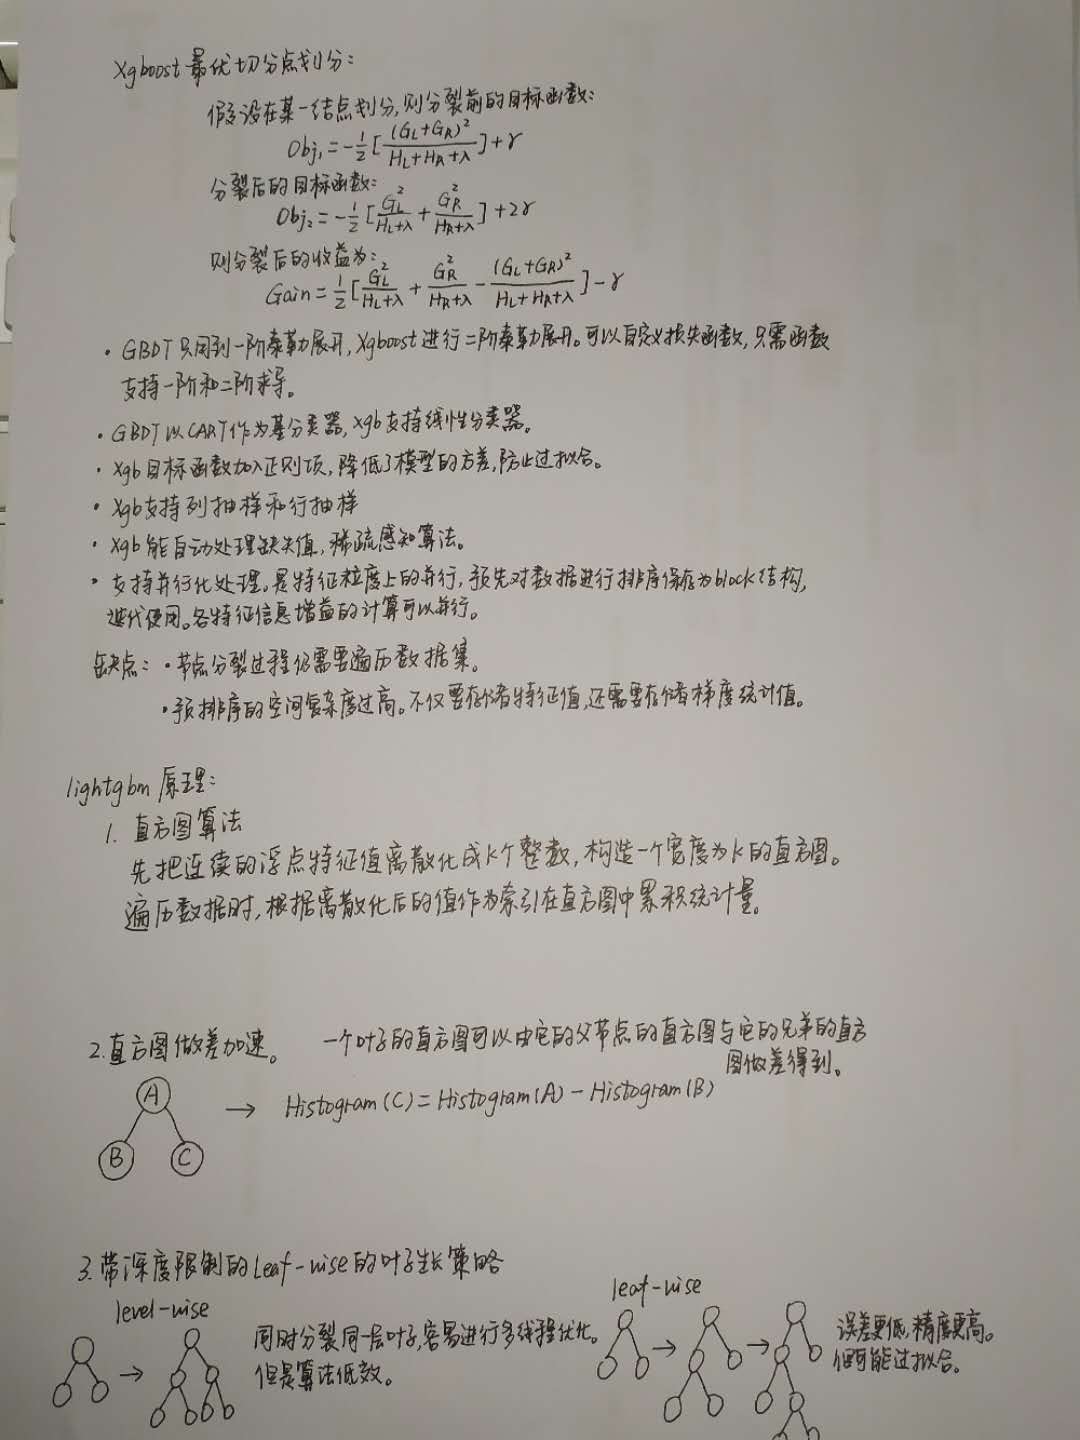 Xgboost最优切分点划分：
假设在某一结点划分，则分裂前的目标函数：
Obj₁ = -1/2 [ (G_L+G_R)² / (H_L+H_R+λ) ] + γ
分裂后的目标函数：
Obj₂ = -1/2 [ G_L²/(H_L+λ) + G_R²/(H_R+λ) ] + 2γ
则分裂后的收益为：
Gain = 1/2 [ G_L²/(H_L+λ) + G_R²/(H_R+λ) - (G_L+G_R)²/(H_L+H_R+λ) ] - γ
· GBDT只用到一阶泰勒展开，Xgboost进行二阶泰勒展开。可以自定义损失函数，只需函数
支持一阶和二阶求导。
· GBDT以CART作为基分类器，xgb支持线性分类器。
· Xgb目标函数加入正则项，降低了模型的方差，防止过拟合。
· Xgb支持列抽样和行抽样
· Xgb能自动处理缺失值，稀疏感知算法。
· 支持并行化处理。是特征粒度上的并行，预先对数据进行排序保存为block结构，
迭代使用。各特征信息增益的计算可以并行。
缺点：·节点分裂过程仍需要遍历数据集。
·预排序的空间复杂度过高。不仅要存储特征值，还需要存储梯度统计值。
lightgbm原理：
1. 直方图算法
先把连续的浮点特征值离散化成K个整数，构造一个宽度为K的直方图。
遍历数据时，根据离散化后的值作为索引在直方图中累积统计量。
2.直方图做差加速。 一个叶子的直方图可以由它的父节点的直方图与它的兄弟的直方
图做差得到。
A
→ Histogram(C) = Histogram(A) - Histogram(B)
B C
3.带深度限制的Leaf-wise的叶子生长策略
level-wise
leaf-wise
→ 同时分裂同一层叶子，容易进行多线程优化。
但是算法低效。
→ → 误差更低，精度更高。
但可能过拟合。